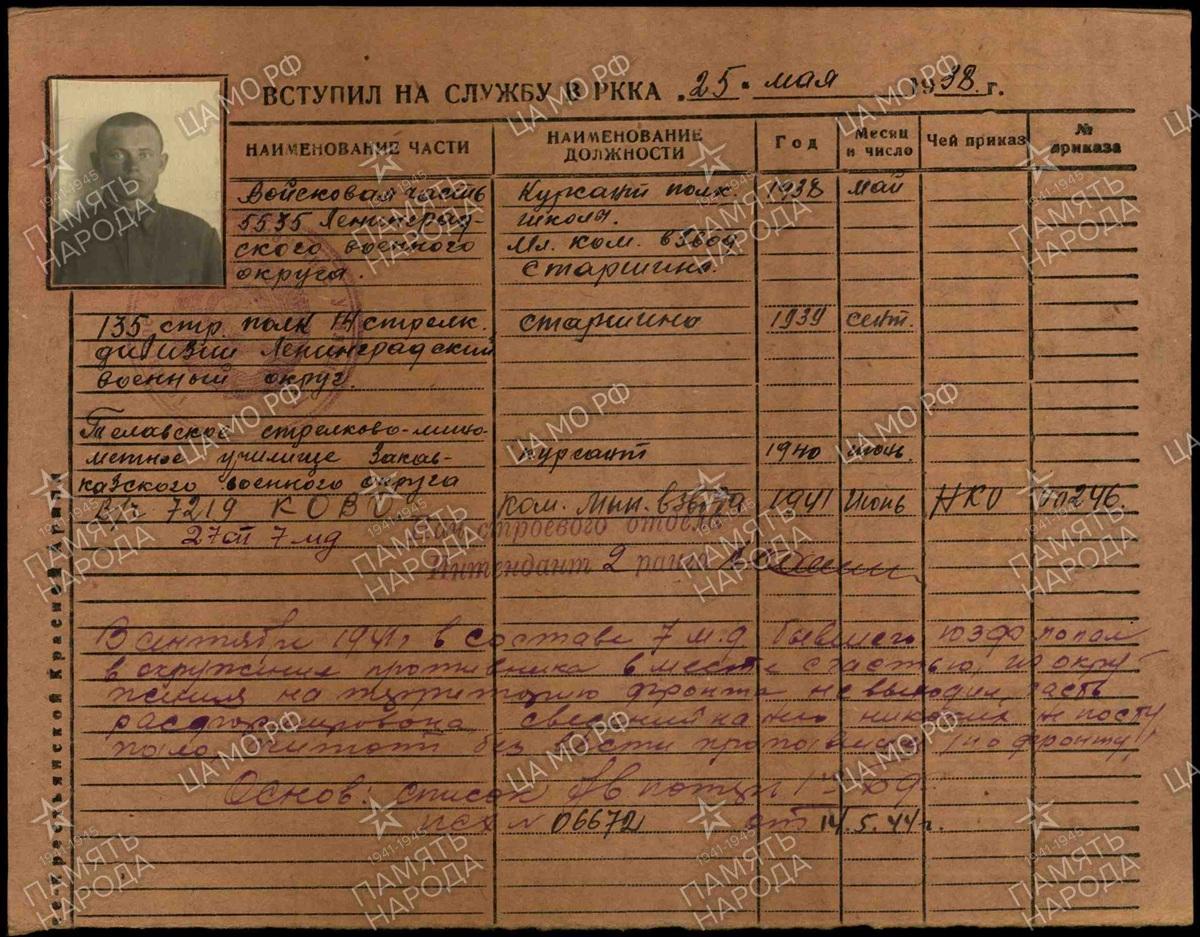 ВСТУПИЛ НА СЛУЖБУ В РККА „25“ мая 1938 г.
НАИМЕНОВАНИЕ ЧАСТИ НАИМЕНОВАНИЕ ДОЛЖНОСТИ Год Месяц и число Чей приказ № приказа
Войсковая часть Курсант полк. 1938 май
5535 Ленинград- школы.
ского военного Мл. ком. взвод
округа. старшина.
135 стр. полк 14 стрелк. старшина 1939 сент.
дивизии Ленинградский
военный округ.
Телавское стрелково-мино-
метное училище Закав- курсант 1940 июнь.
казского военного округа
В/ч 7219 КОВО. Ком. мин. взвода 1941 Июнь НКО 00246.
27 7 мд строевого отдела
Интендант 2 ранга
В сентябре 1941г в составе 7 м.д. бывшего ЮЗФ попал
в окружение противника вместе с частью, из окру-
жения на территорию фронта не выходил, часть
расформирована сведений на него никаких не посту
пало, считать без вести пропавшим (по фронту)
Основ: список
исх № 06672 от 14.5.44г.
ЦА МО РФ
1941-1945
ПАМЯТЬ
НАРОДА